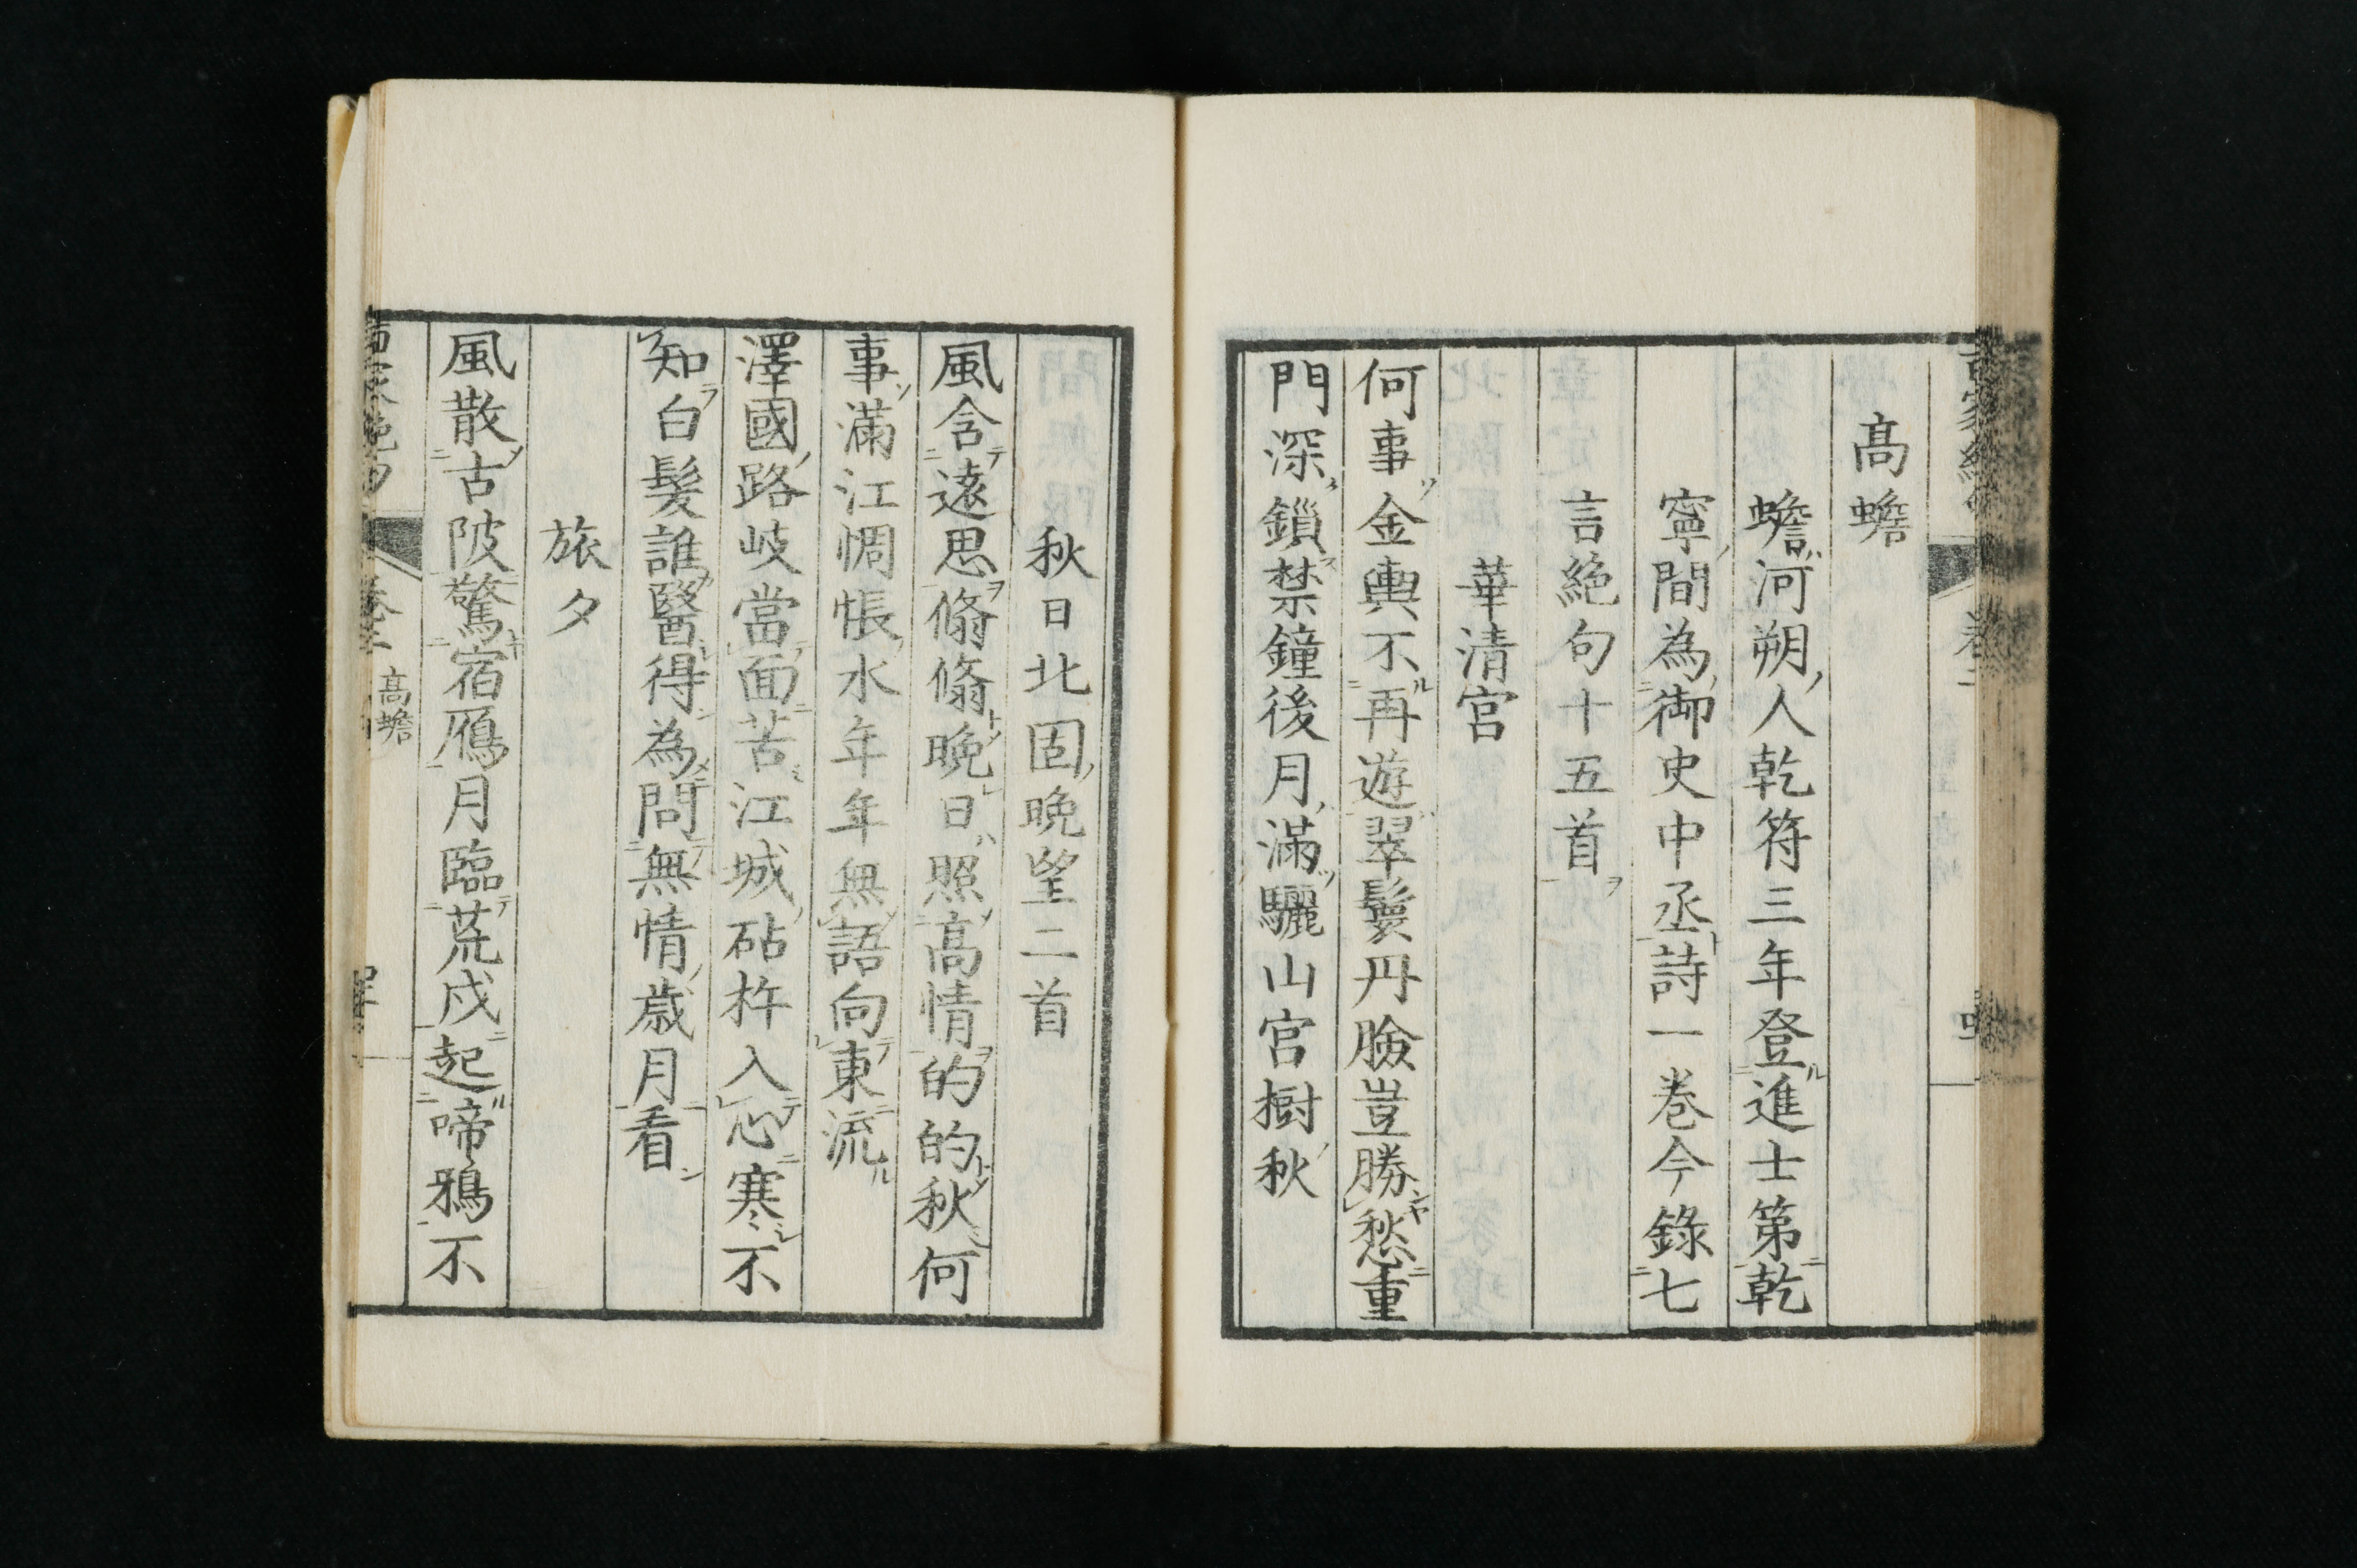 高蟾
蟾河朔人乾符三年登進士第乾
寧間為御史中丞詩一卷今錄七
言絕句十五首
華清宮
何事金輿不再遊翠鬟丹臉豈勝愁重
門深鎖禁鐘後月滿驪山宮樹秋
秋日北固晚望二首
風含遠思翛翛晚日照高情的的秋何
事滿江惆悵水年年無語向東流
澤國路岐當面苦江城砧杵入心寒不
知白髮誰醫得為問無情歲月看
旅夕
風散古陂驚宿鴈月臨荒戍起啼鴉不
高蟾